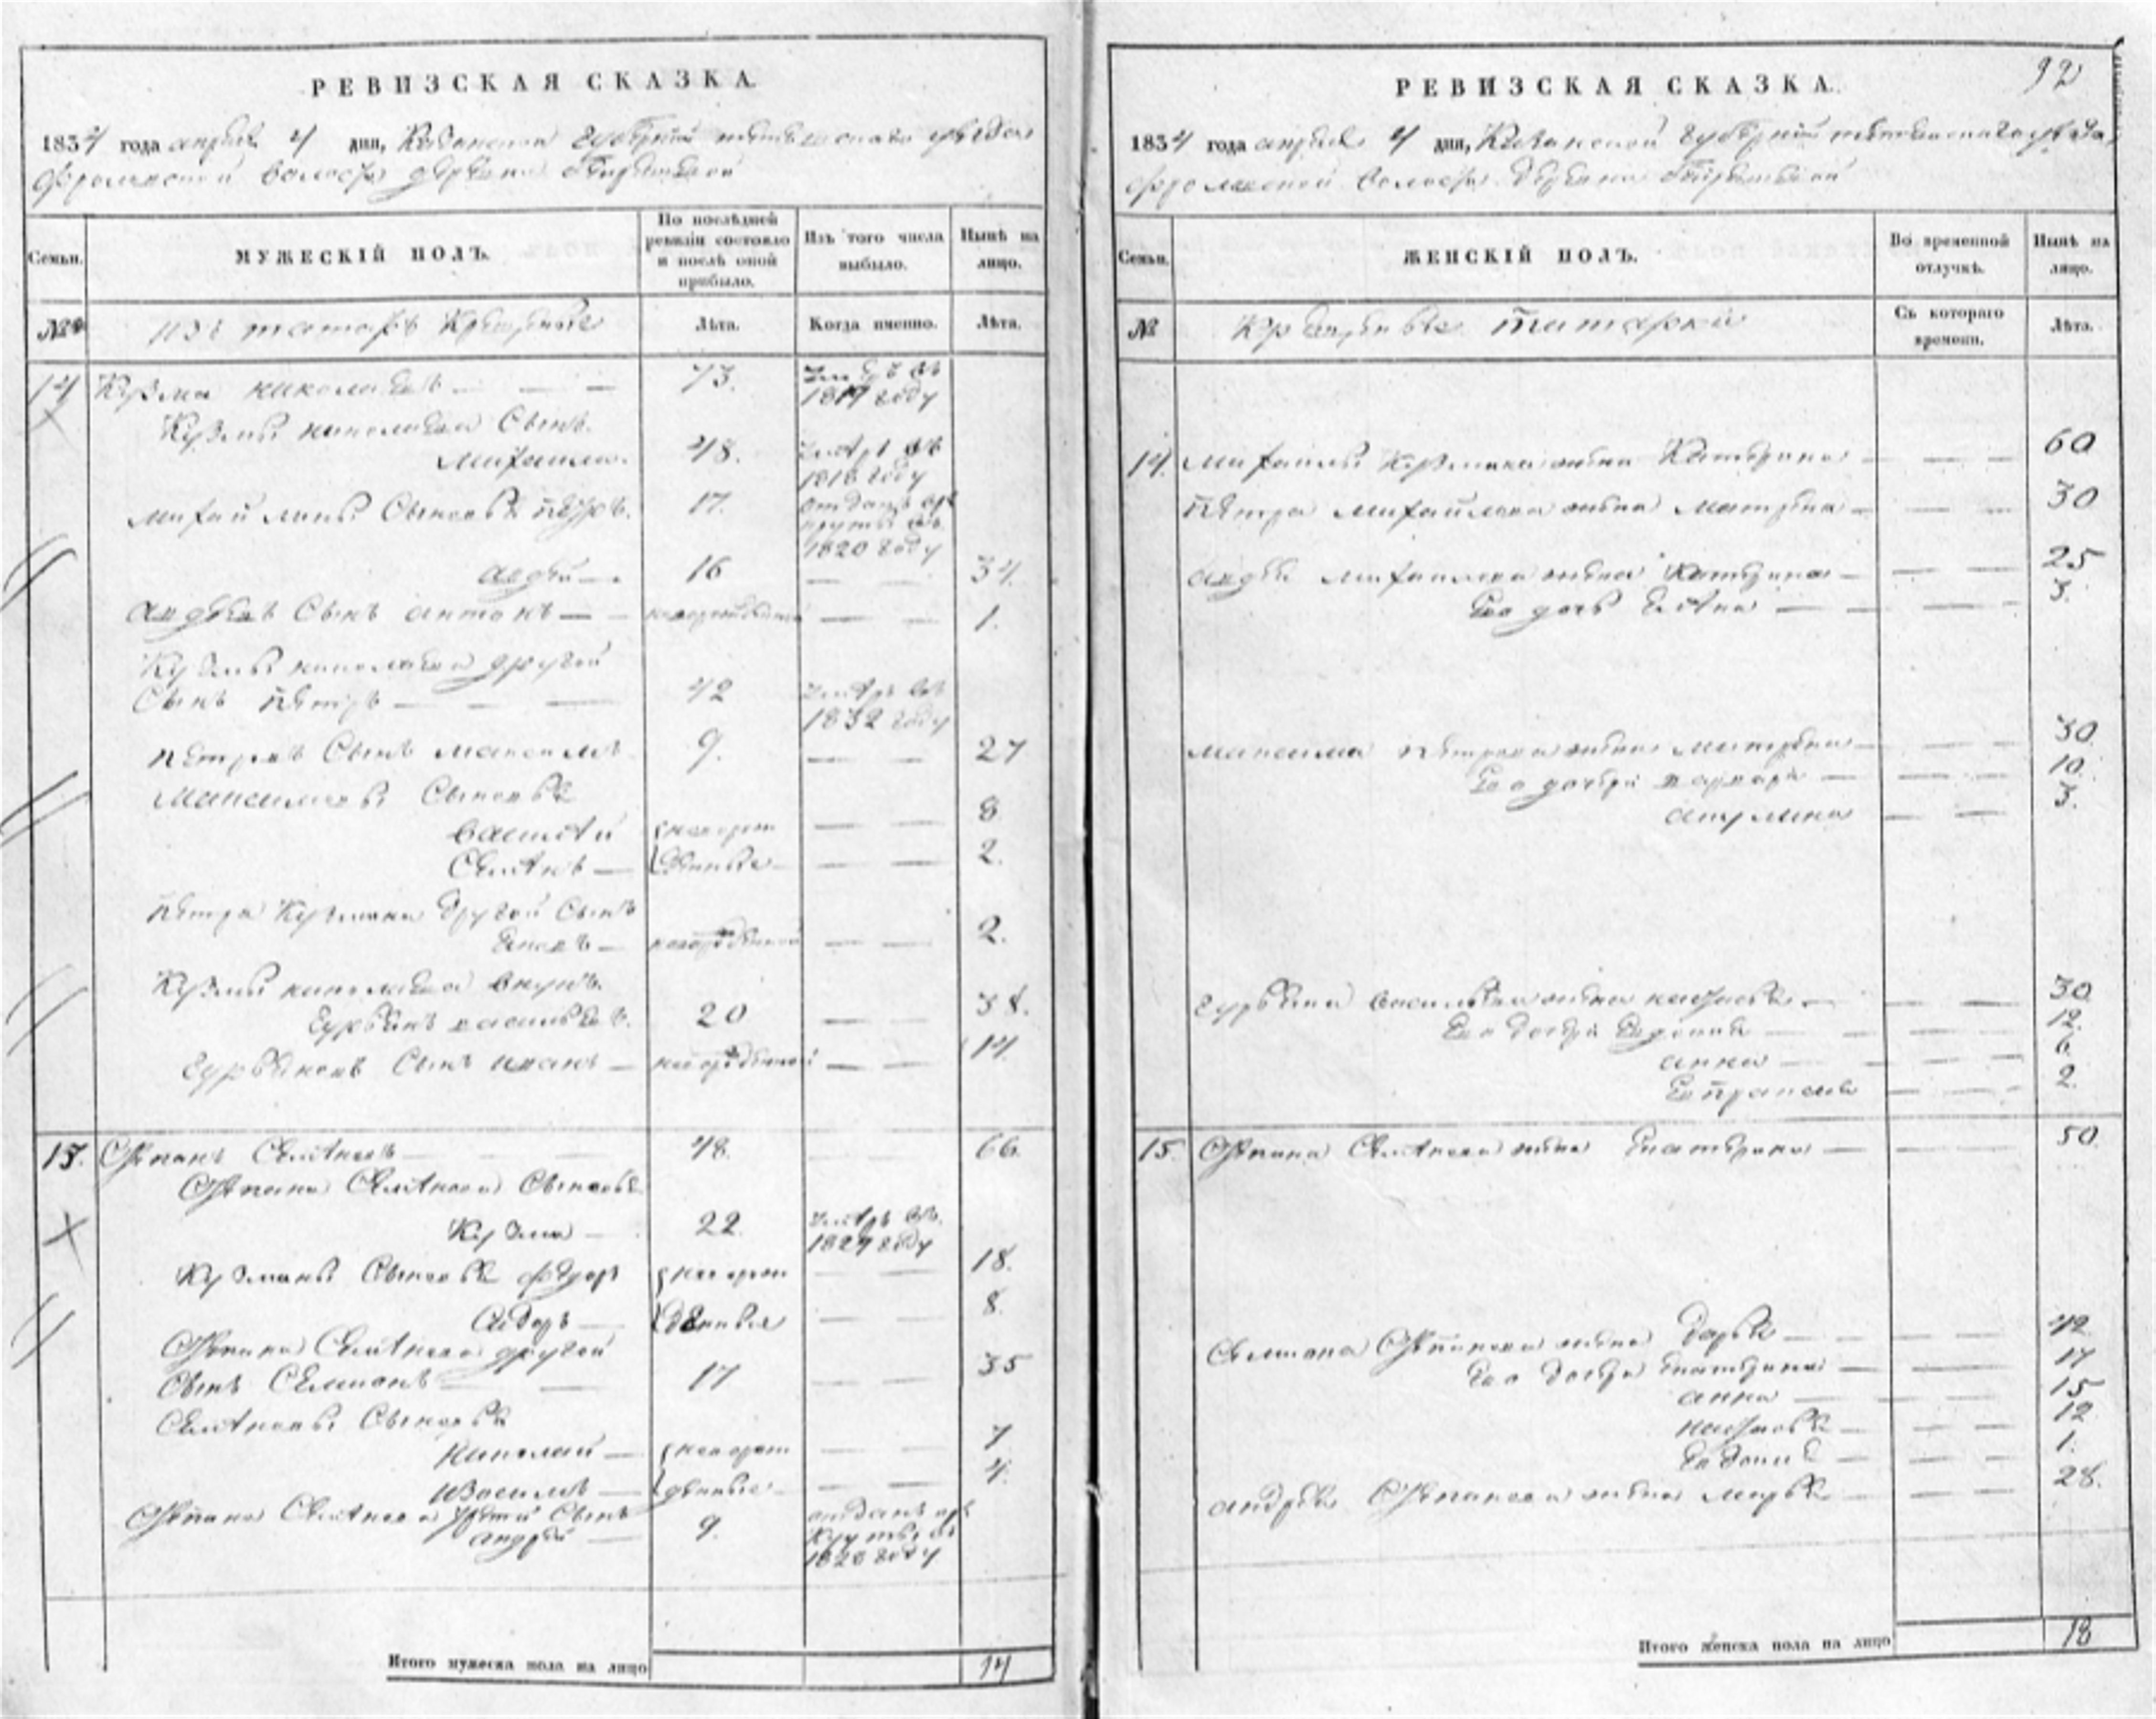 РЕВИЗСКАЯ СКАЗКА.
1834 года апреля 4 дня, Казанской губернии уезда
волости деревни
Семьи.
МУЖЕСКІЙ ПОЛЪ.
По послѣдней ревизіи состояло и послѣ оной прибыло.
Изъ того числа выбыло.
Нынѣ на лицо.
№
изъ татаръ крещеные
Лѣта.
Когда именно.
Лѣта.
14 Кузма николаевъ — — 73. умре въ
1819 году
Кузмы николаева Сынъ
михаила. 48. умре въ
1816 году
михайлины Сыновья петръ. 17. отданъ въ
рекруты въ
1820 году
авдей — 16 — — 34.
авдеевъ Сынъ антонъ — новорожденной — — 1.
Кузмы николаева другой
Сынъ петръ — — — 42 умре въ
1832 году
петровъ Сынъ максимъ 9. — — 27
максимовы Сыновья
василей новорож — — 8
Семенъ — денные — — 2.
петра Кузмина другой Сынъ
— новорожденной — — 2.
Кузмы николаева внукъ
васильевъ. 20 — — 38.
Сынъ иванъ — новорожденной — — 14.
15. Степанъ Семеновъ — 48. 66.
Степана Семенова Сыновья
Кузма — 22. умре въ
1827 году
Кузмины Сыновья федоръ новорож — — 18.
Сидоръ — денные — — 8.
Степана Семенова другой
Сынъ Семионъ — — 17 — — 35
Семеновы Сыновья
николай — новорож — — 7
— денные — — 4.
Степана Семенова третй Сынъ
андрей — 9. отданъ въ
рекруты въ
1828 году
Итого мужеска пола на лицо 14
92
РЕВИЗСКАЯ СКАЗКА.
1834 года апреля 4 дня, Казанской губернии уезда,
волости деревни
Семьи.
ЖЕНСКІЙ ПОЛЪ.
Во временной отлучкѣ.
Нынѣ на лицо.
№
Крещеные татарки
Съ котораго времени.
Лѣта.
14. михайлы Кузмина жена Катерина — — — 60
петра михайлова жена матрена — — — 30
авдея михайлова жена Катерина — — — 25
Ево дочь елена — — — 3.
максима петрова жена матрена — — — 30.
Ево дочери варвара — — — 10.
акулина — — 3.
васильева жена настасья — — — 30
Ево дочери — — — 12.
анна — — — 6
— — 2.
15. Степана Семенова жена Екатерина — — — 50.
Семиона Степанова жена дарья — — — 42
Ево дочери Екатерина — — — 17
анна — — — 15
настасья — — — 12
— — — 1.
андрея Степанова жена марья — — — 28.
Итого женска пола на лицо 18